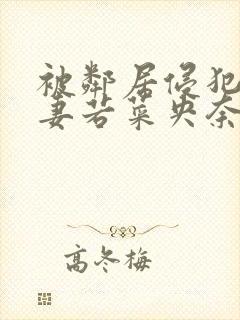 被邻居侵犯
妻若菜央奈
高冬梅